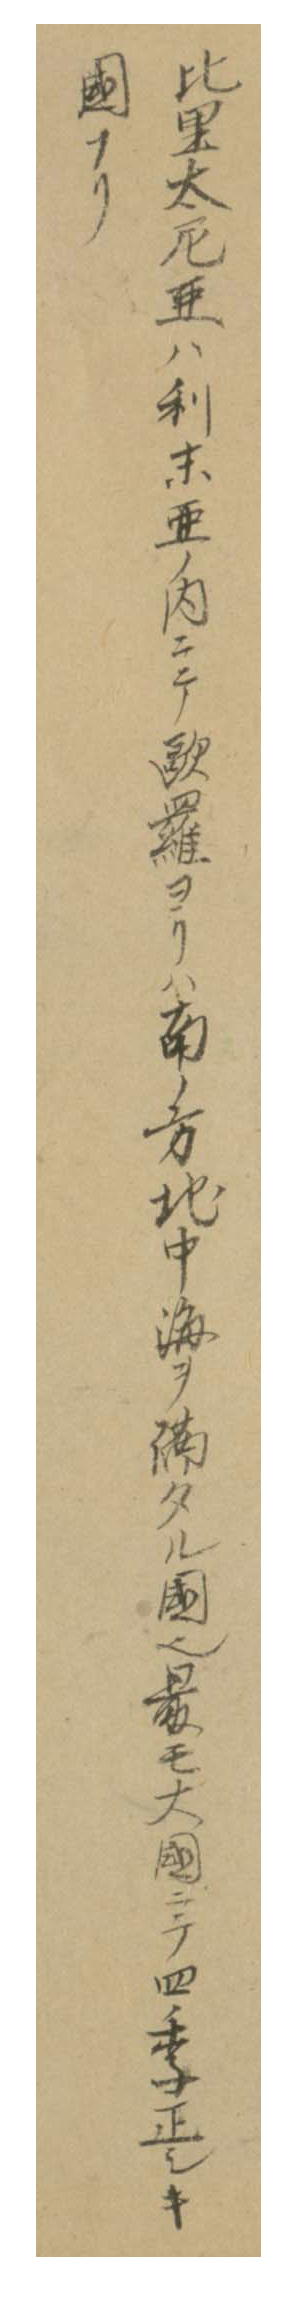 比里太尼亜ハ利未亜ノ内ニテ歐羅ヨリハ南ノ方地中海ヲ隔タル國也最モ大國ニテ四季正シキ
國ナリ